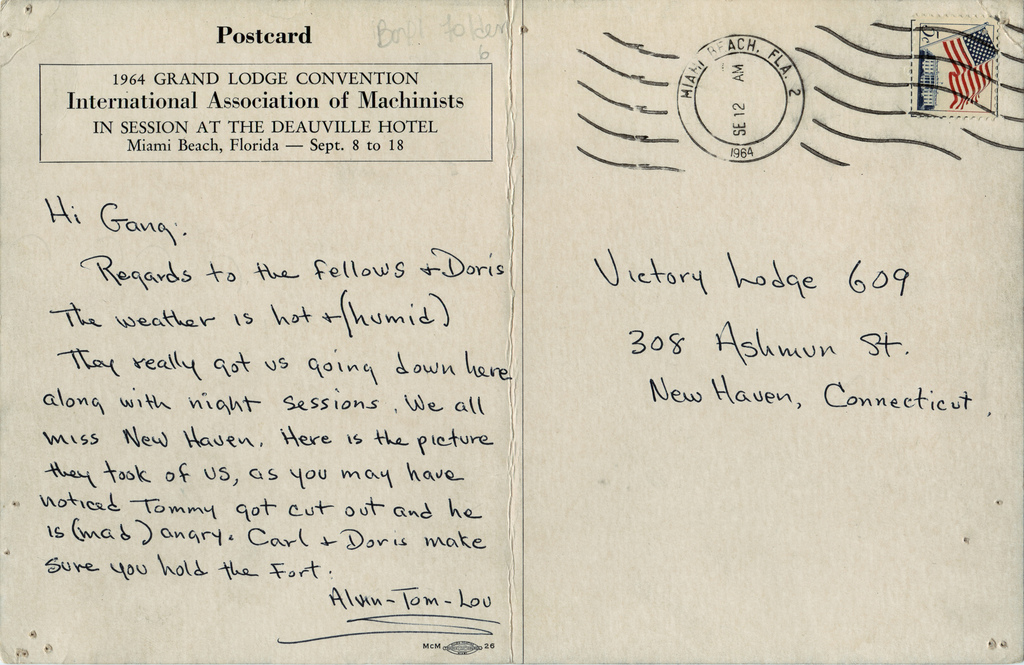 Postcard
1964 GRAND LODGE CONVENTION
International Association of Machinists
IN SESSION AT THE DEAUVILLE HOTEL
Miami Beach, Florida — Sept. 8 to 18
Hi Gang:
Regards to the fellows + Doris
The weather is hot + (humid)
They really got us going down here
along with night sessions. We all
miss New Haven. Here is the picture
they took of us, as you may have
noticed Tommy got cut out and he
is (mad) angry. Carl + Doris make
sure you hold the Fort.
Alvin-Tom-Lou
MCM 26
MIAMI BEACH, FLA. 2
SE 12 AM
1964
5c
Victory Lodge 609
308 Ashmun St.
New Haven, Connecticut.